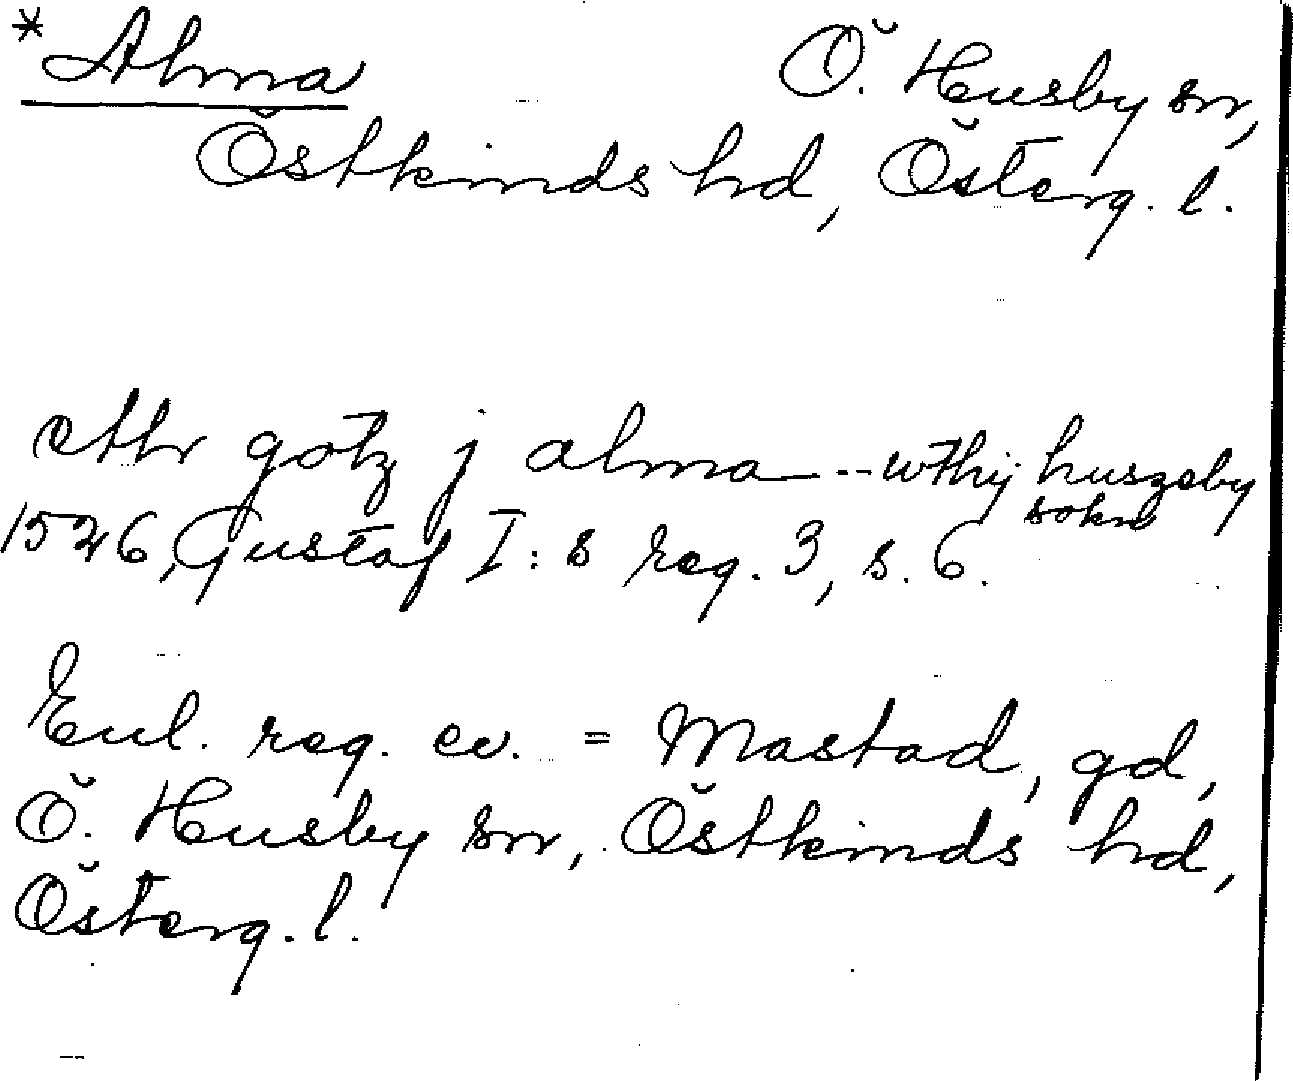 *Alma Ö. Husby sn,
Östkinds hd, Österg. l.
ett gotz j alma -- wthj huszeby
sokn
1526, Gustaf I:s reg. 3, s. 6.
Enl. reg. ev. = Mastad, gd,
Ö. Husby sn, Östkinds hd,
Österg. l.